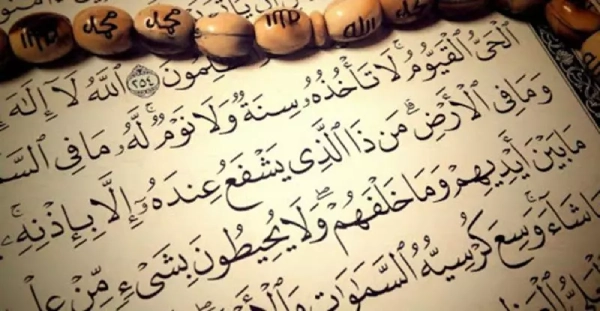 محمد
محمد
الله
محمد
ٱللَّهُ لَآ إِلَٰهَ ٢٥٤
ٱلْحَىُّ ٱلْقَيُّومُ ۚ لَا تَأْخُذُهُۥ سِنَةٌ وَلَا نَوْمٌ ۚ لَّهُۥ مَا فِى
وَمَا فِى ٱلْأَرْضِ ۗ مَن ذَا ٱلَّذِى يَشْفَعُ عِندَهُۥٓ إِلَّا بِإِذْنِهِۦ ۚ
مَا بَيْنَ أَيْدِيهِمْ وَمَا خَلْفَهُمْ ۖ وَلَا يُحِيطُونَ بِشَىْءٍ مِّنْ
شَآءَ ۚ وَسِعَ كُرْسِيُّهُ ٱلسَّمَٰوَٰتِ